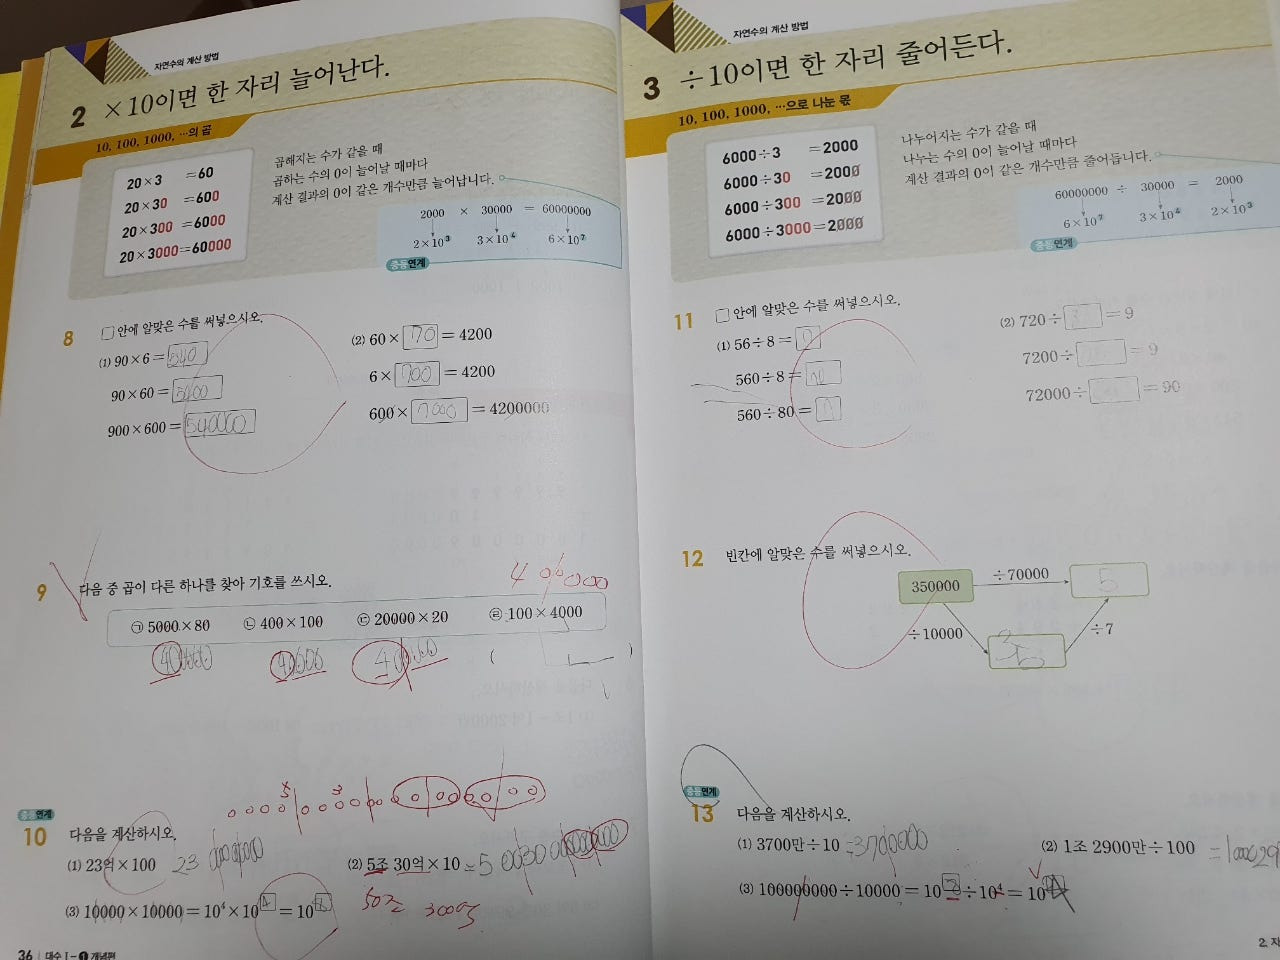 자연수의 계산 방법
2 ×10이면 한 자리 늘어난다.
10, 100, 1000, …의 곱
20×3 =60
20×30 =600
20×300 =6000
20×3000=60000
곱해지는 수가 같을 때
곱하는 수의 0이 늘어날 때마다
계산 결과의 0이 같은 개수만큼 늘어납니다.
2000 × 30000 = 60000000
2×10³ 3×10⁴ 6×10⁷
중등연계
8 □ 안에 알맞은 수를 써넣으시오.
(1) 90×6= 540
90×60= 5400
900×600= 540000
(2) 60× 70 =4200
6× 700 =4200
600× 7000 =4200000
9 다음 중 곱이 다른 하나를 찾아 기호를 쓰시오.
㉠ 5000×80 ㉡ 400×100 ㉢ 20000×20 ㉣ 100×4000
( )
중등연계
10 다음을 계산하시오.
(1) 23억×100
(2) 5조 30억×10
50조 300억
(3) 10000×10000=10⁴×10 =10
36 대수 Ⅰ-1 개념편
자연수의 계산 방법
3 ÷10이면 한 자리 줄어든다.
10, 100, 1000, …으로 나눈 몫
6000÷3 =2000
6000÷30 =2000
6000÷300 =2000
6000÷3000=2000
나누어지는 수가 같을 때
나누는 수의 0이 늘어날 때마다
계산 결과의 0이 같은 개수만큼 줄어듭니다.
60000000 ÷ 30000 = 2000
6×10⁷ 3×10⁴ 2×10³
중등연계
11 □ 안에 알맞은 수를 써넣으시오.
(1) 56÷8= 7
560÷8= 70
560÷80= 7
(2) 720÷ =9
7200÷ =9
72000÷ =90
12 빈칸에 알맞은 수를 써넣으시오.
350000 ÷70000 5
÷10000 35 ÷7
중등연계
13 다음을 계산하시오.
(1) 3700만÷10 =3700000
(2) 1조 2900만÷100
(3) 100000000÷10000=10 ÷10⁴=10
2. 자